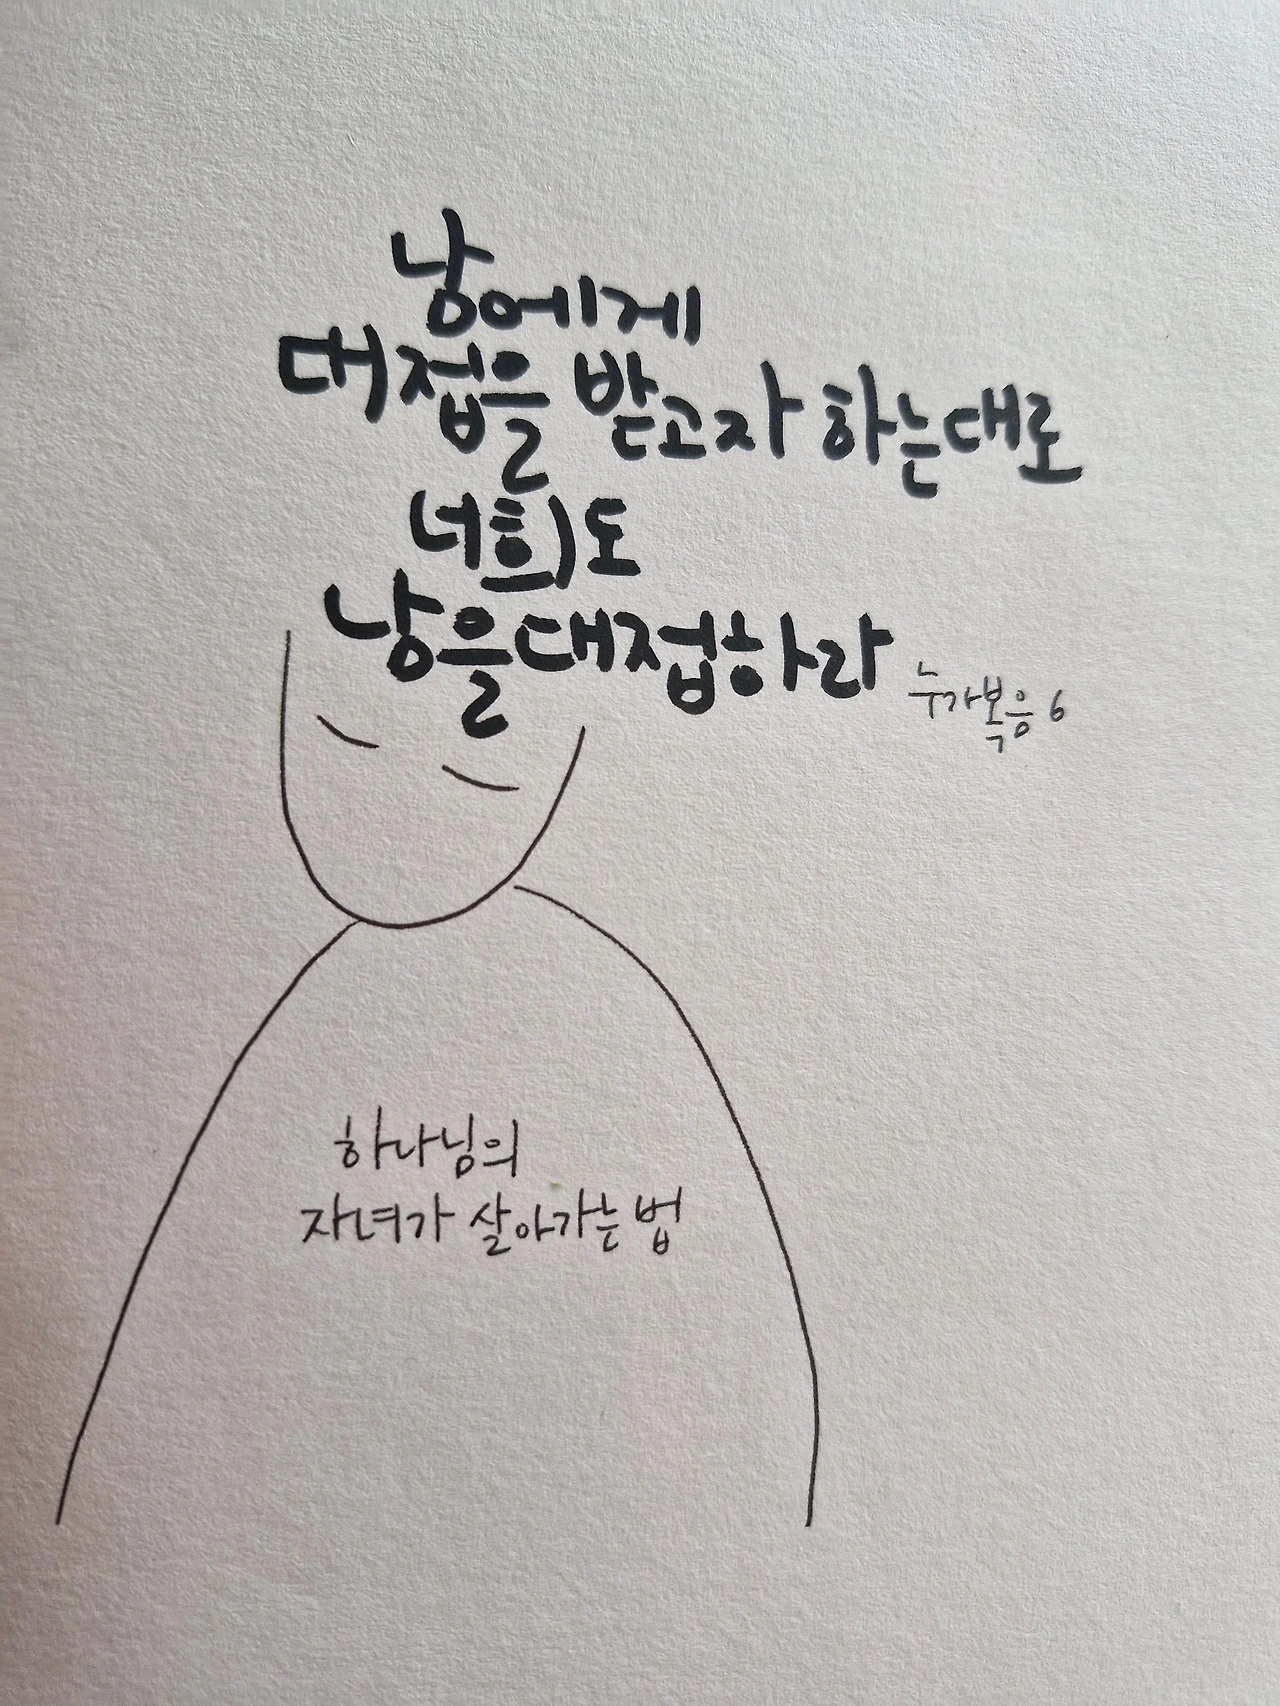 남에게
대접을 받고자 하는대로
너희도
남을대접하라
누가복음 6
하나님의
자녀가 살아가는 법